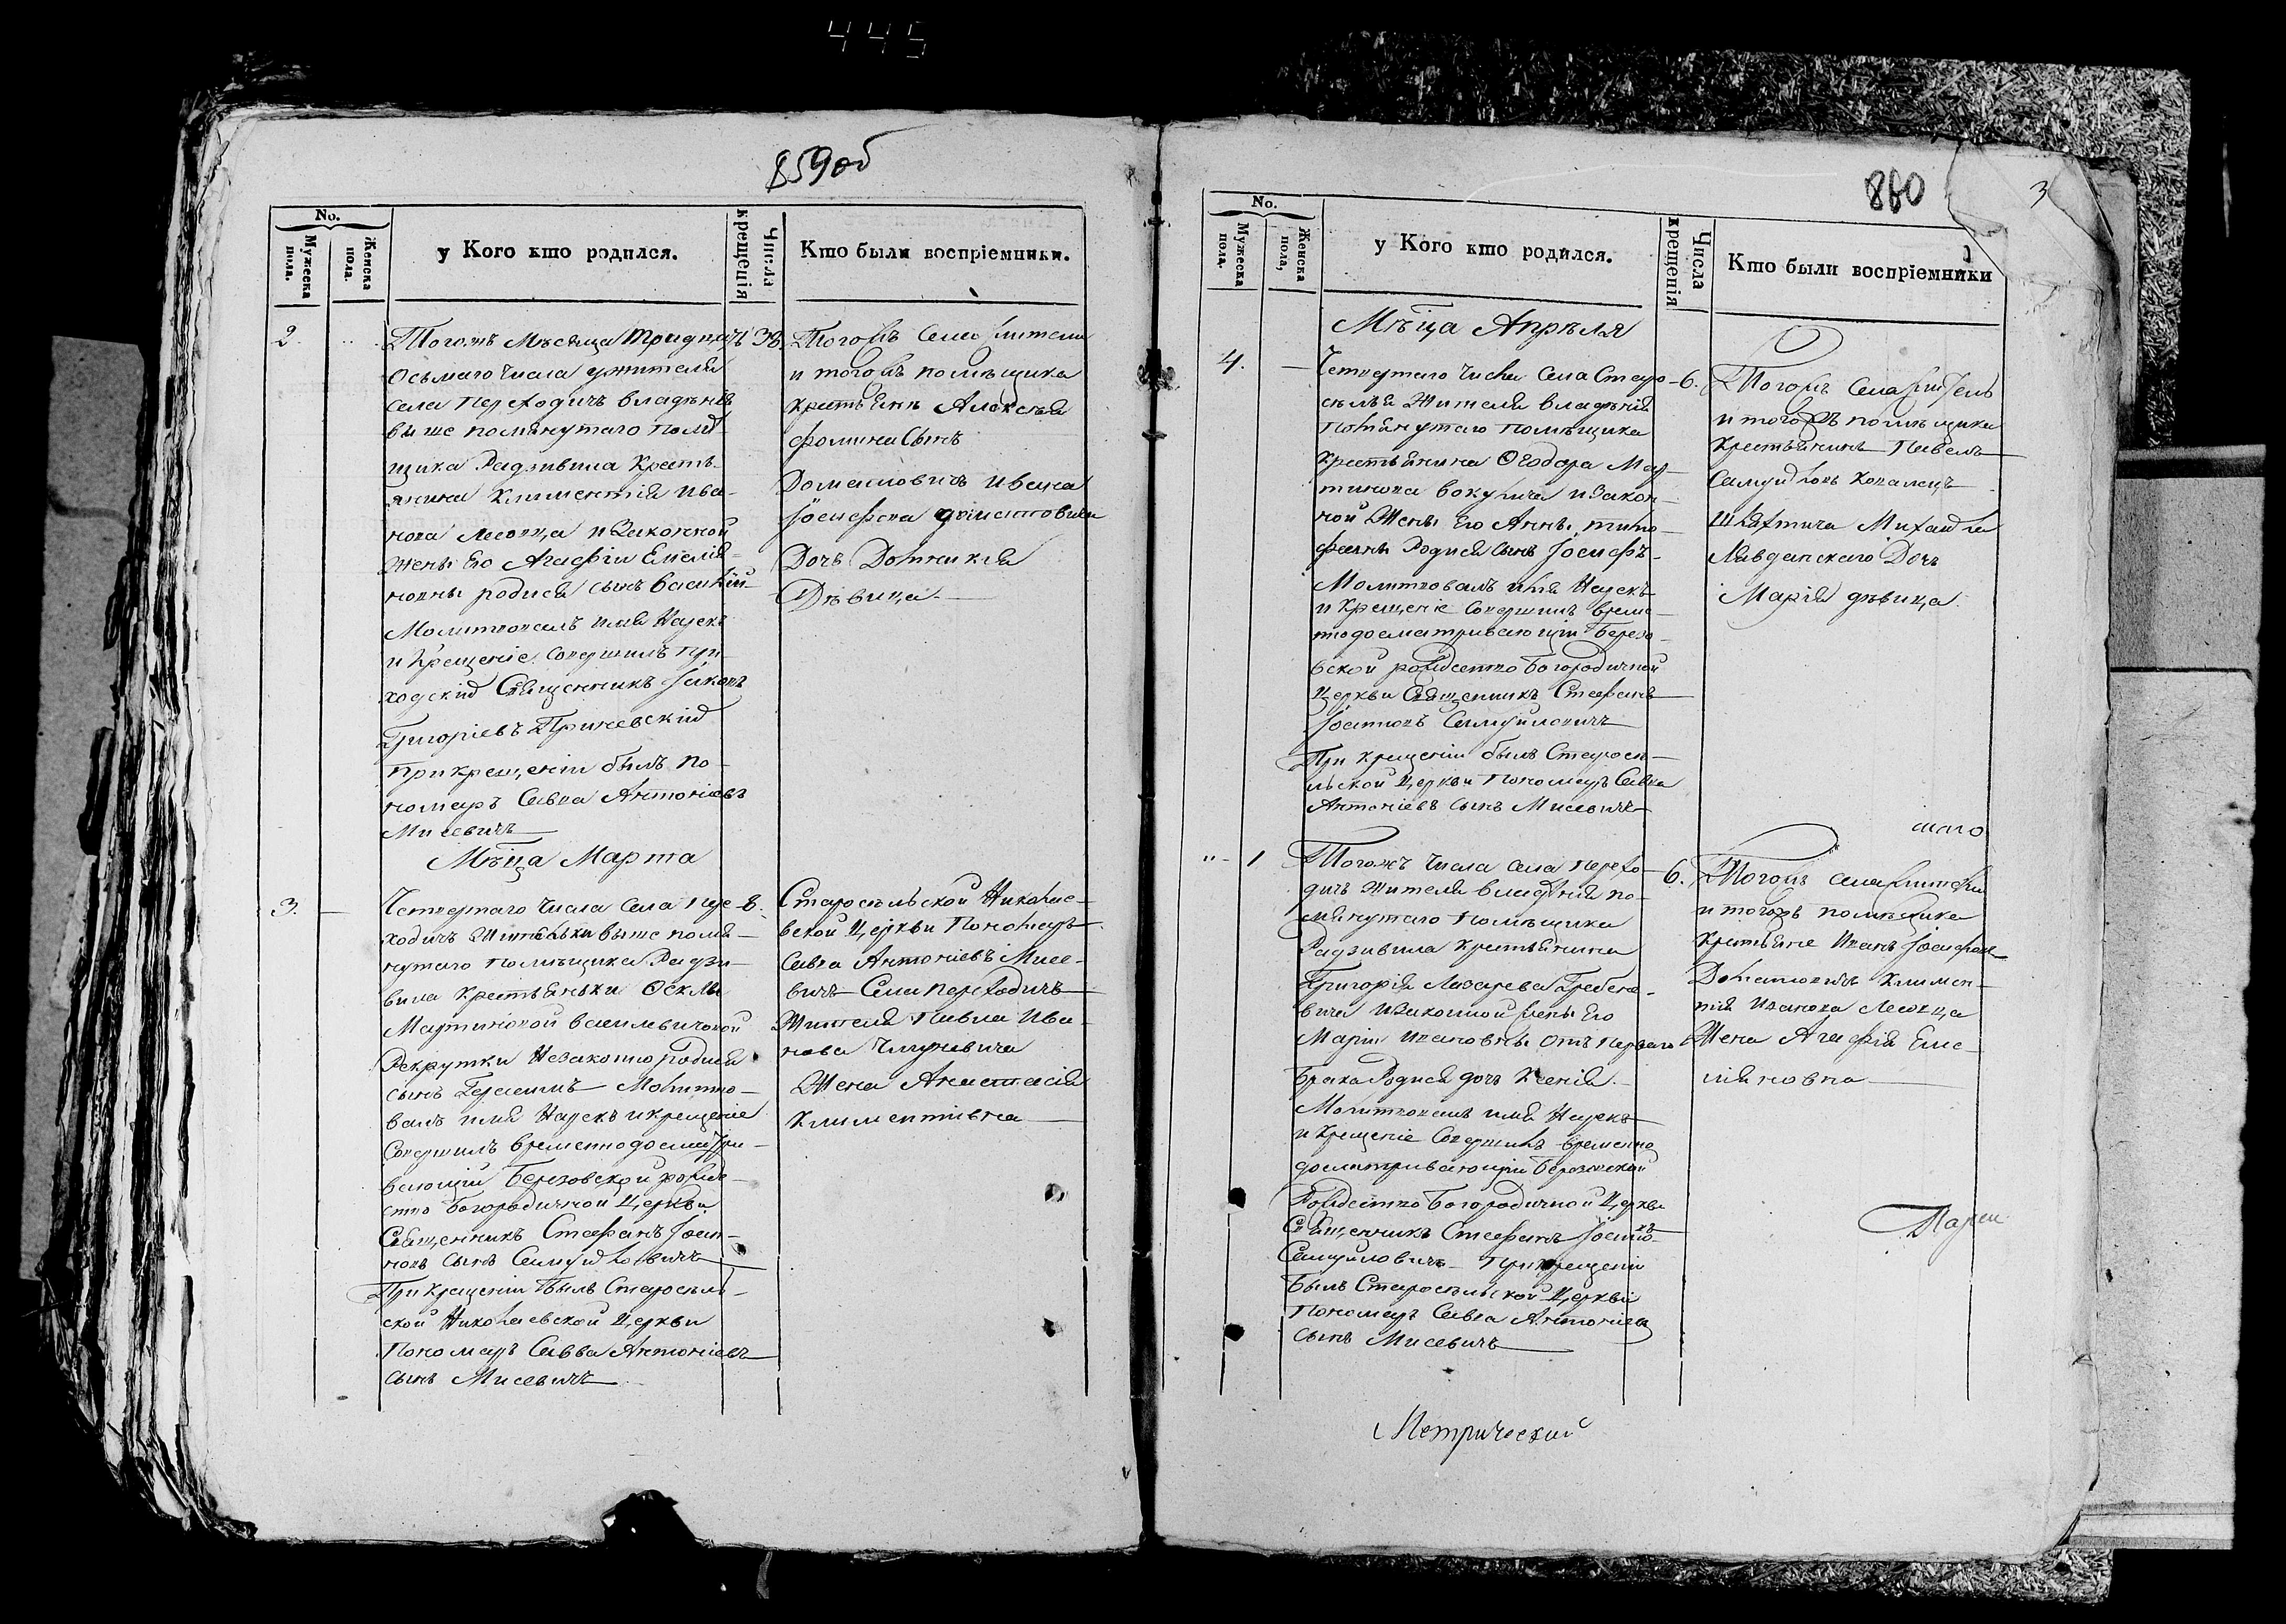 445
859об
No.
Мужеска пола.
Женска пола.
у Кого кто родился.
Числа крещенія
Кто были воспріемники.
2.
Тогожъ Мѣсяца Тридцать
Осьмаго Числа ужителя
села Переходичъ владѣнія
выше помянутаго помѣ-
щика Радзивила Крестъ-
янина Климентія Ива-
нова Лесовца и Законной
Жены Его Агафіи Емелія-
новны родися сынъ Василій
Молитвовалъ имя Нарекъ
и Крещеніе Совершилъ при-
ходскій Священникъ Іаковъ
Григоріевъ Приневскій
при крещеніи былъ по-
номарь Савва Антоніевъ
Мисевичъ
38.
Тогожъ Села жители
и тогожъ помѣщика
Крестьянъ Алексѣя
Фомина Сынъ
Ивана
Іосифова
Дочь Домникія
Дѣвица
Мѣца Марта
3.
Четвертаго Числа Села Пере-
ходичъ Жительки выше помя-
нутаго помѣщика Радзи-
вила Крестьянки Ѳеклы
Мартиновой Василевичовой
Рекрутки Незаконно родися
сынъ Герасимъ Молитво-
валъ имя Нарекъ и крещеніе
Совершилъ временнодосматри-
вающій Березовской рожде-
ство Богородичной Церкви
Священникъ Стефанъ Іоан-
новъ сынъ Самуйловичъ
При Крещеніи Былъ Старосель-
ской Николаевской Церкви
Пономарь Савва Антоніевъ
сынъ Мисевичъ
8.
Старосельской Николае-
вской Церкви Пономарь
Савва Антоніевъ Мисе-
вичъ Села Переходичъ
Жителя Павла Ива-
нова
Жена Анастасія
Климентіевна
860
3
No.
Мужеска пола.
Женска пола,
у Кого кто родился.
Числа крещенія
Кто были воспріемники
Мѣца Апрѣля
4.
Четвертаго Числа Села Старо-
сѣлья Жителя владѣнія
помянутаго помѣщика
Крестьянина Ѳеодора Мар-
тинова и Закон-
ной Жены Его Анны Тимо-
феевны Родися сынъ Іосифъ
Молитвовалъ имя Нарекъ
и Крещеніе Совершилъ време-
нодосматривающій Березо-
вской рождество Богородичной
Церкви Священникъ Стефанъ
Іоанновъ Самуйловичъ
При крещеніи былъ Старосе-
льской Церкви Пономарь Савва
Антоніевъ сынъ Мисевичъ
6.
Тогожъ Села житель
и тогожъ помѣщика
Крестьянинъ Павелъ
Самуйловъ
Шляхтича Михаила
Дочь
Марія дѣвица.
1
Тогожъ Числа Села Перехо-
дичъ Жителя владѣнія по-
мянутаго Помѣщика
Радзивила крестьянина
Григорія Лазарева Гребене-
вича и Законной жены Его
Маріи Ивановны отъ перваго
Брака Родися дочь Ксенія.
Молитвовалъ имя Нарекъ
и Крещеніе Совершилъ временно
досматривающій Березовской
Рождество Богородичной Церкви
Священникъ Стефанъ Іоанновъ
Самуйловичъ При крещеніи
Былъ Старосельской Церкви
Пономарь Савва Антоніевъ
сынъ Мисевичъ
6.
Тогожъ села жители
и тогожъ помѣщика
Крестьяне Иванъ Іосифовъ
Климен-
тія Иванова Лесовца
Жена Агафія Еме-
ліяновна
Метрический